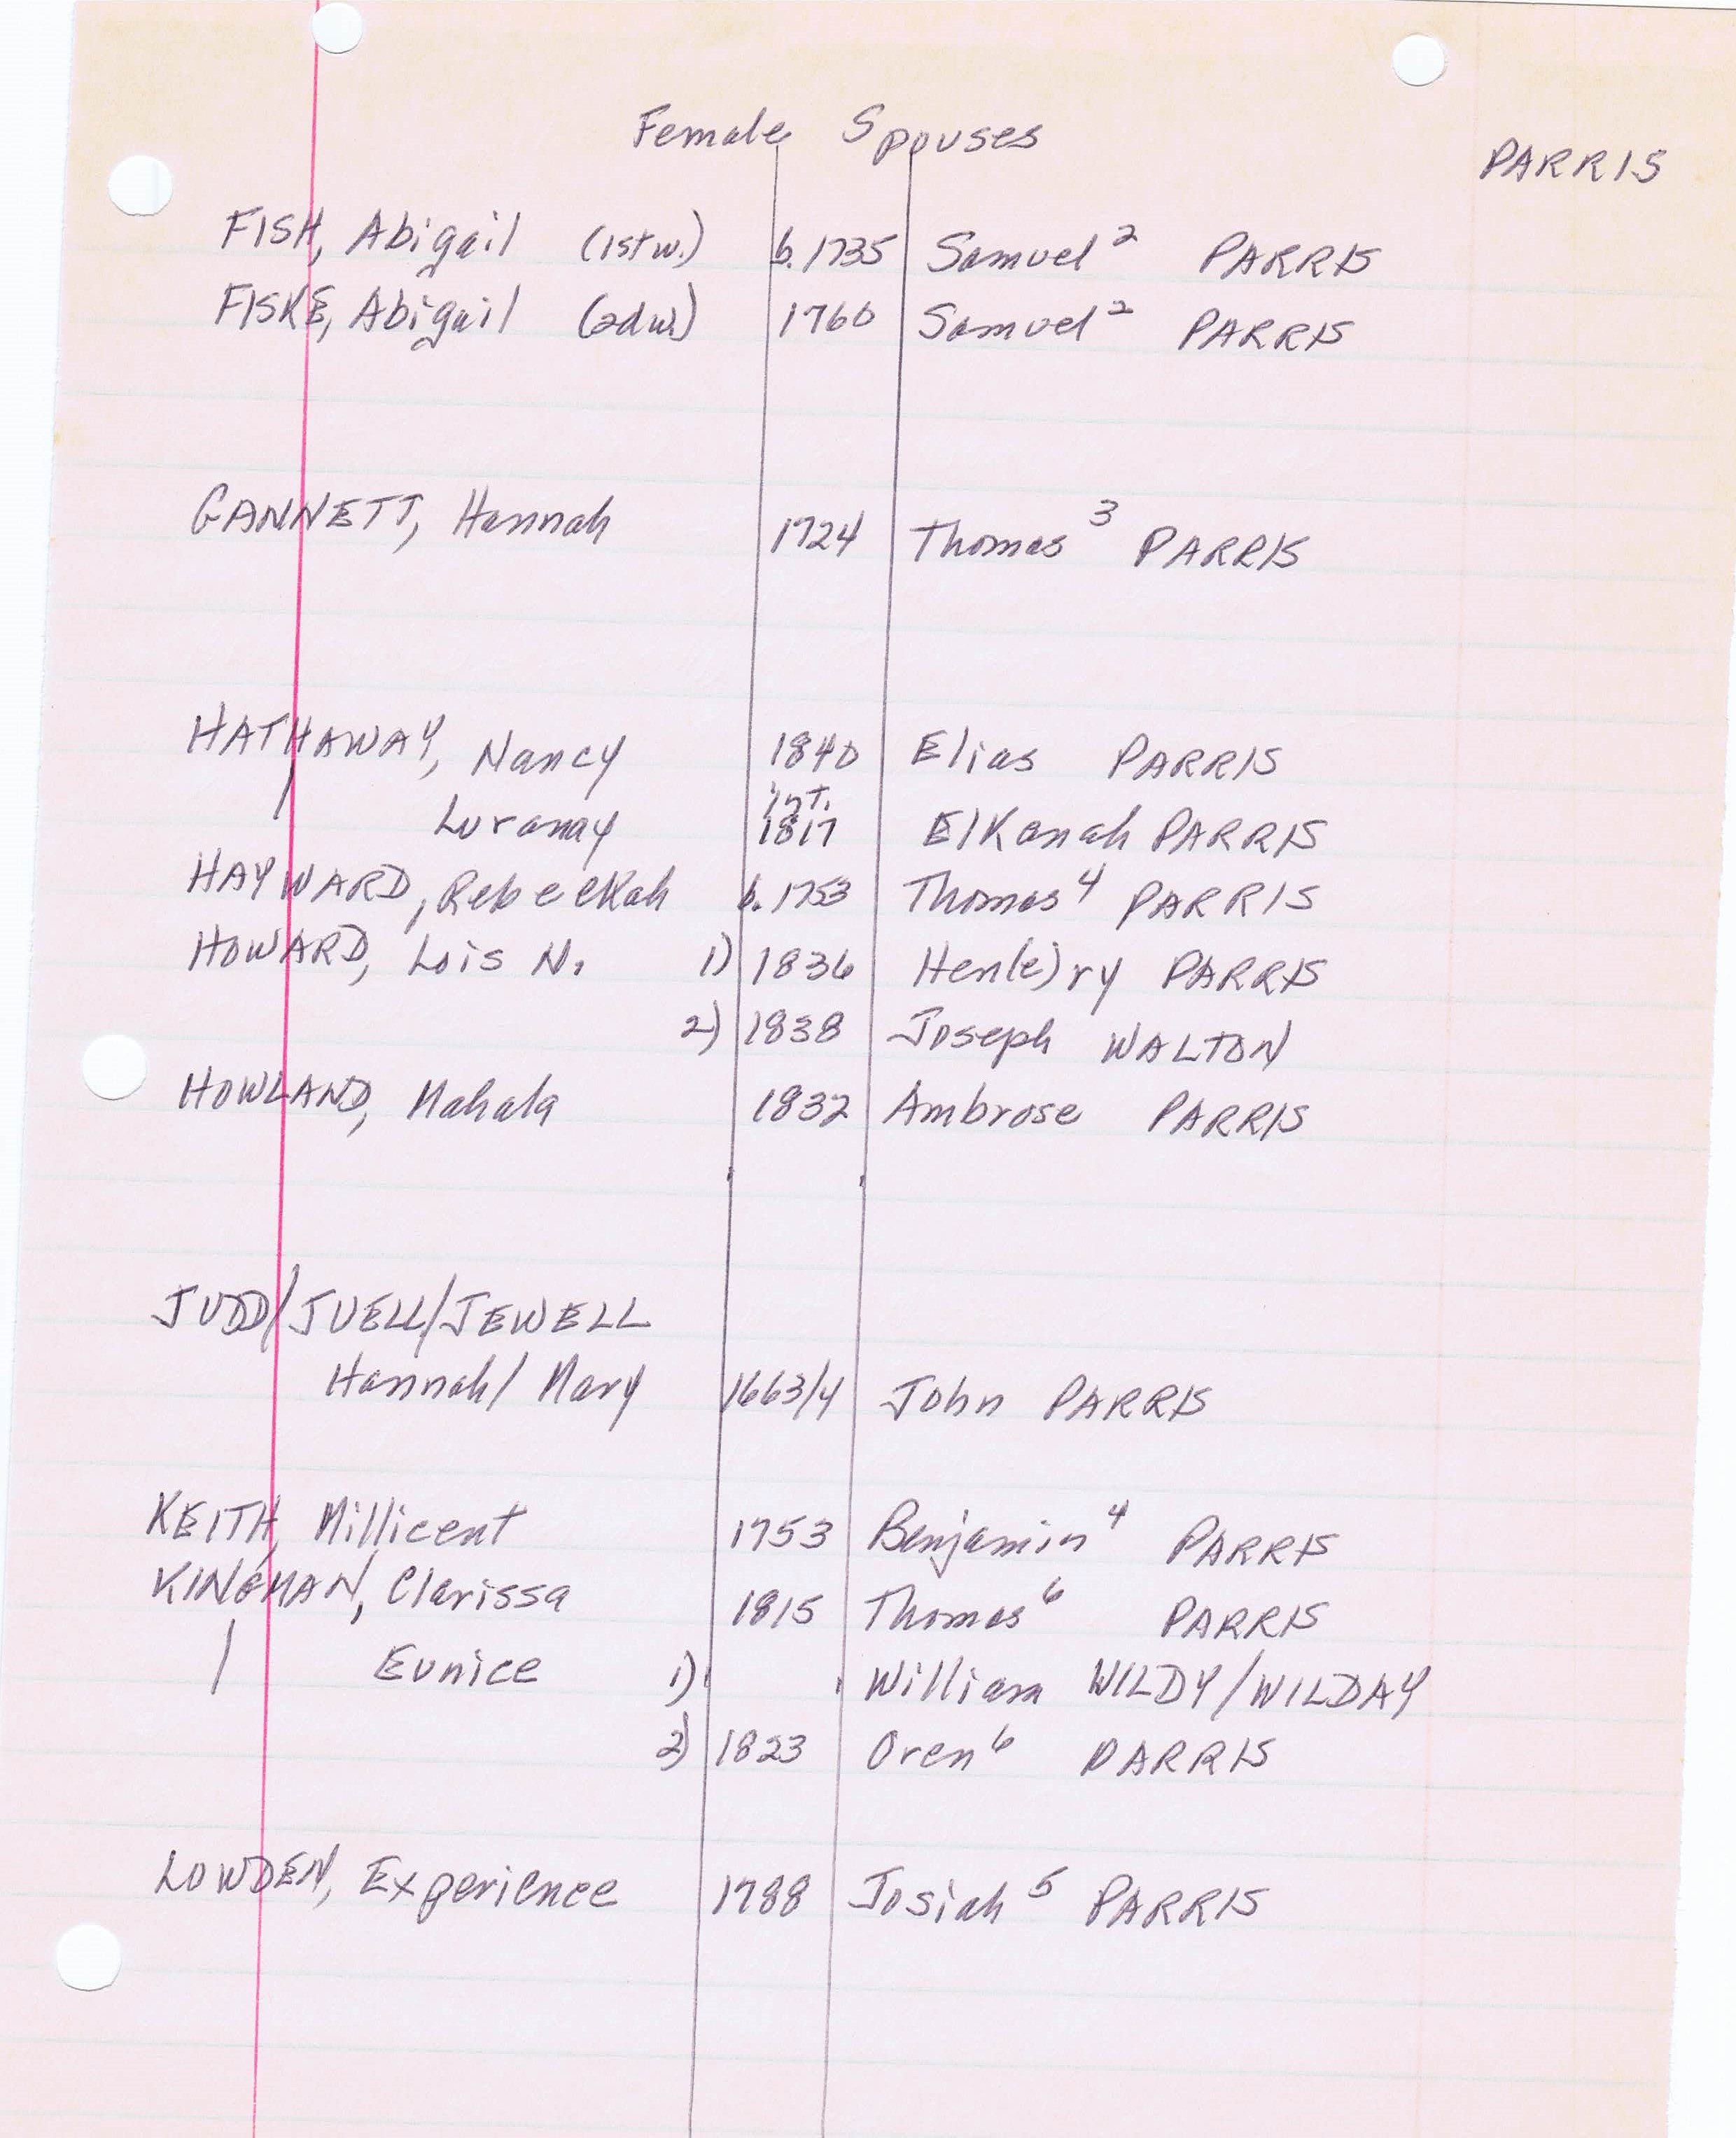 Female Spouses
PARRIS
FISH, Abigail (1st w.) b. 1735 Samuel² PARRIS
FISKE, Abigail (2d w.) 1760 Samuel² PARRIS
GANNETT, Hannah 1724 Thomas³ PARRIS
HATHAWAY, Nancy 1840 Elias PARRIS
int.
Luranay 1817 Elkanah PARRIS
HAYWARD, Rebeckah b. 1753 Thomas⁴ PARRIS
HOWARD, Lois N. 1) 1836 Hen(e)ry PARRIS
2) 1838 Joseph WALTON
HOWLAND, Mahala 1832 Ambrose PARRIS
JUDD/JUELL/JEWELL
Hannah/Mary 1663/4 John PARRIS
KEITH, Millicent 1753 Benjamin⁴ PARRIS
KINGMAN, Clarissa 1815 Thomas⁶ PARRIS
Eunice 1) William WILDY/WILDAY
2) 1823 Oren⁶ PARRIS
LOWDEN, Experience 1788 Josiah⁵ PARRIS